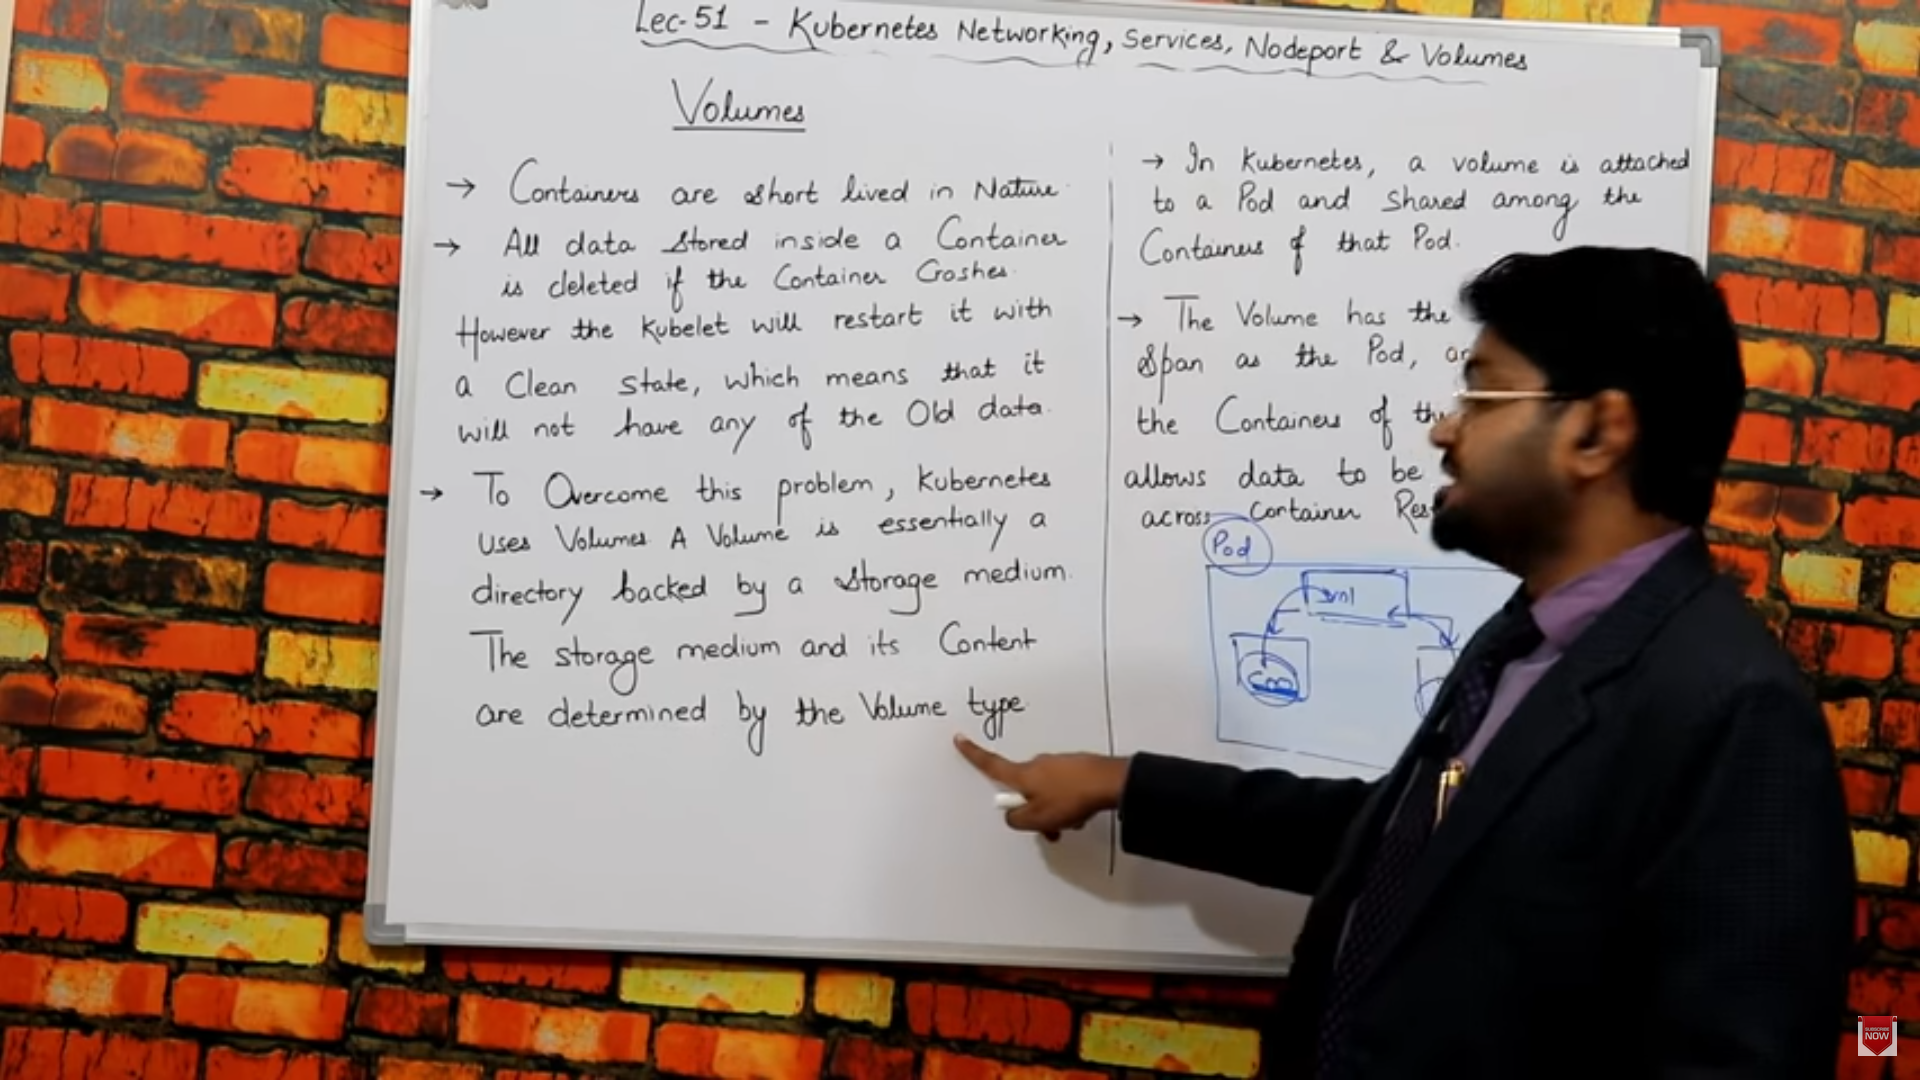 Lec-51 - Kubernetes Networking, Services, Nodeport & Volumes
Volumes
→ Containers are short lived in Nature.
→ All data stored inside a Container
is deleted if the Container Crashes.
However the Kubelet will restart it with
a Clean state, which means that it
will not have any of the Old data.
→ To Overcome this problem, Kubernetes
uses Volumes. A Volume is essentially a
directory backed by a storage medium.
The storage medium and its Content
are determined by the Volume type.
→ In Kubernetes, a volume is attached
to a Pod and shared among the
Containers of that Pod.
→ The Volume has the
span as the Pod,
the Containers of
allows data to be
across Container
Pod
Vol
SUBSCRIBE
NOW